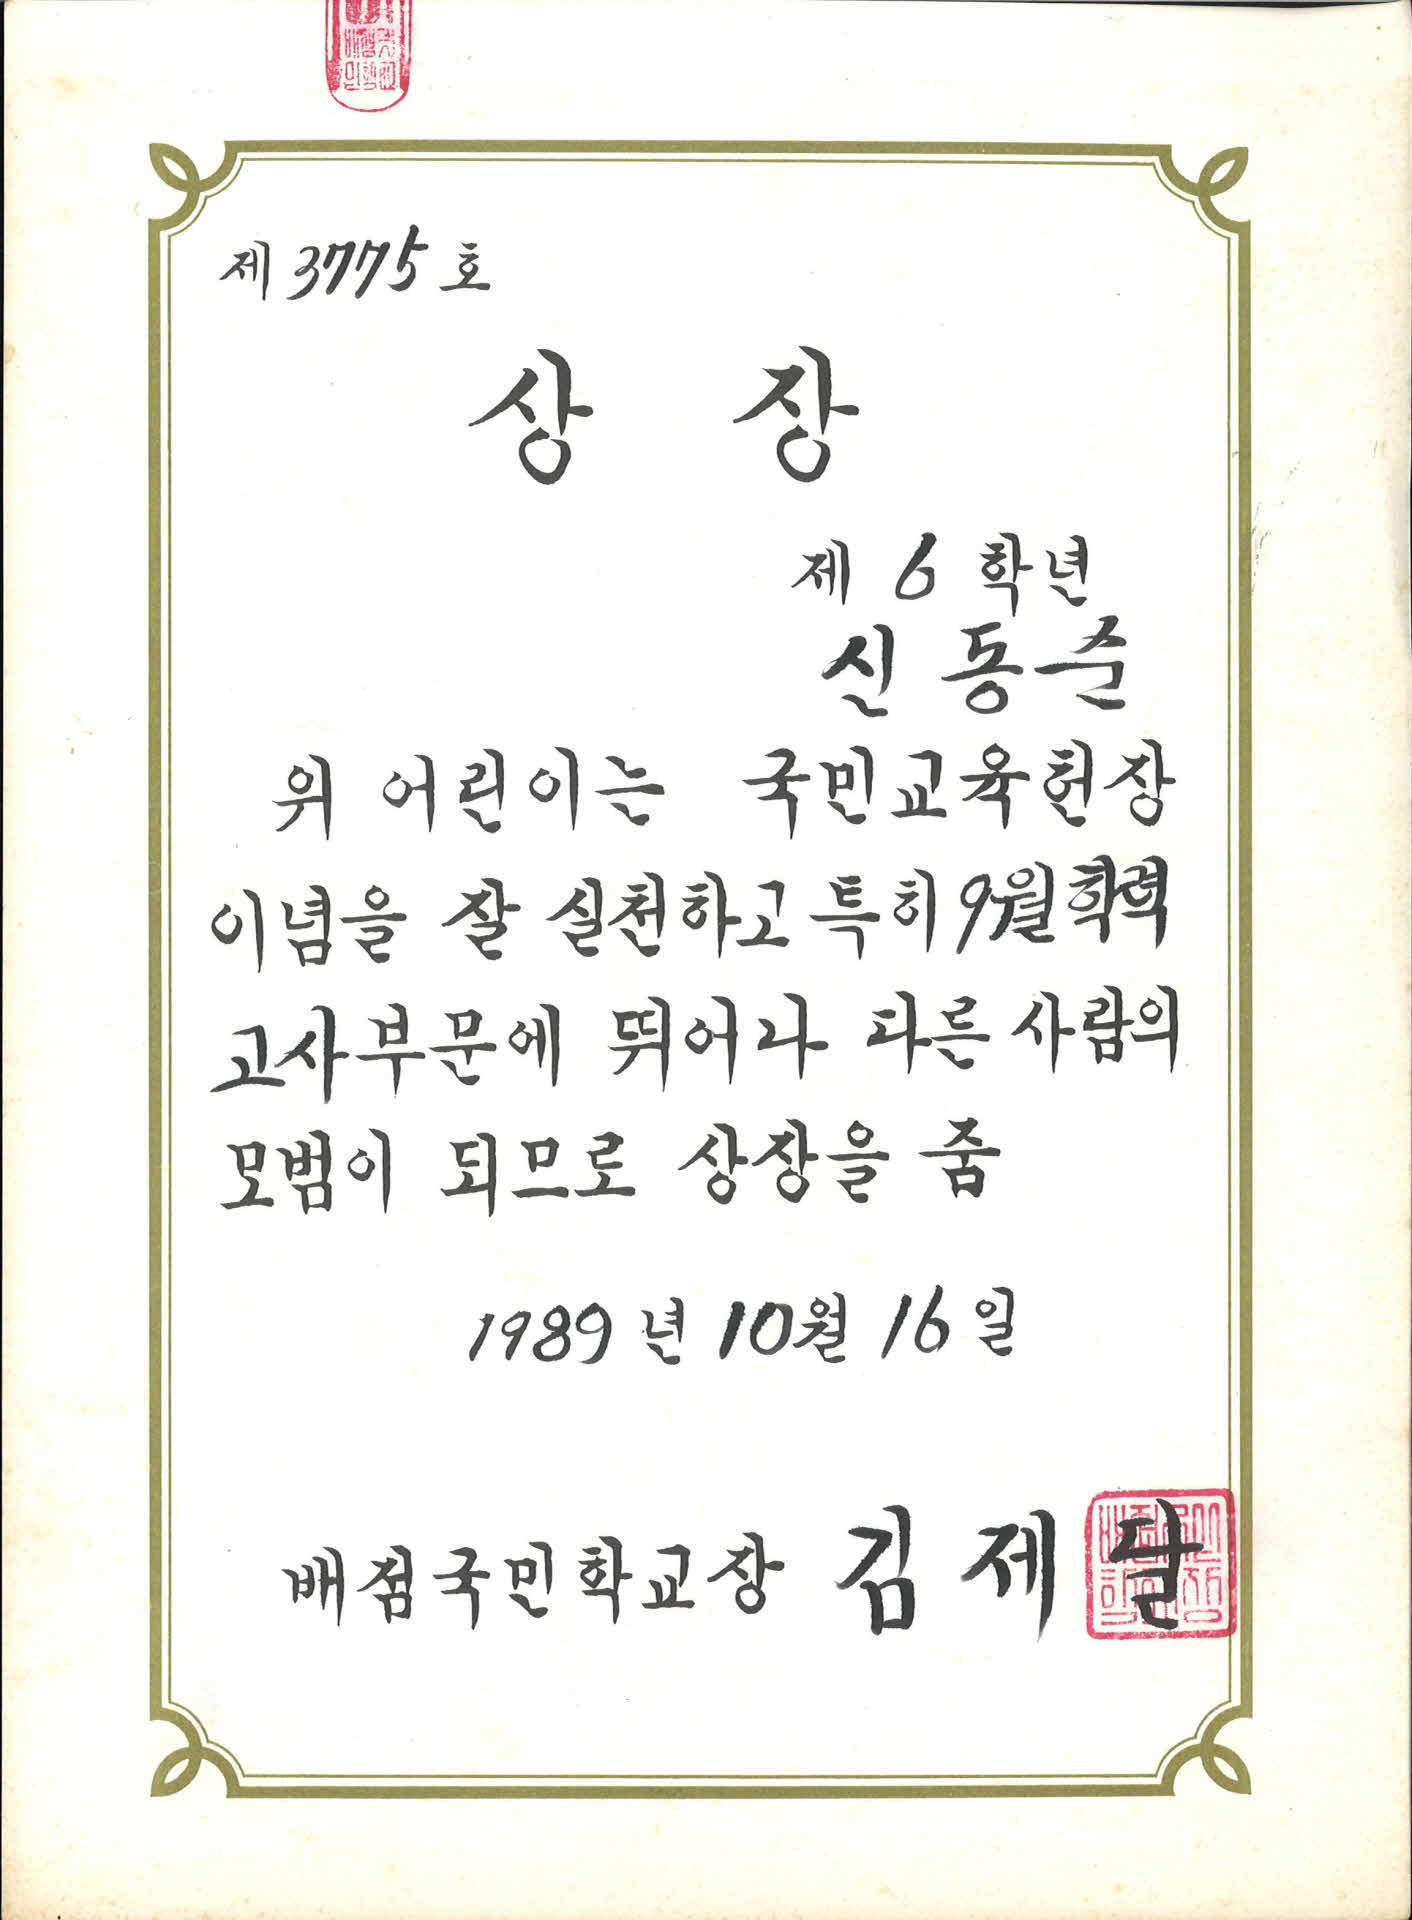 제 3775 호
상 장
제 6 학년
신 동순
위 어린이는 국민교육헌장
이념을 잘 실천하고 특히 9월 학력
고사부문에 뛰어나 다른 사람의
모범이 되므로 상장을 줌
1989 년 10월 16 일
배점국민학교장 김 제 달